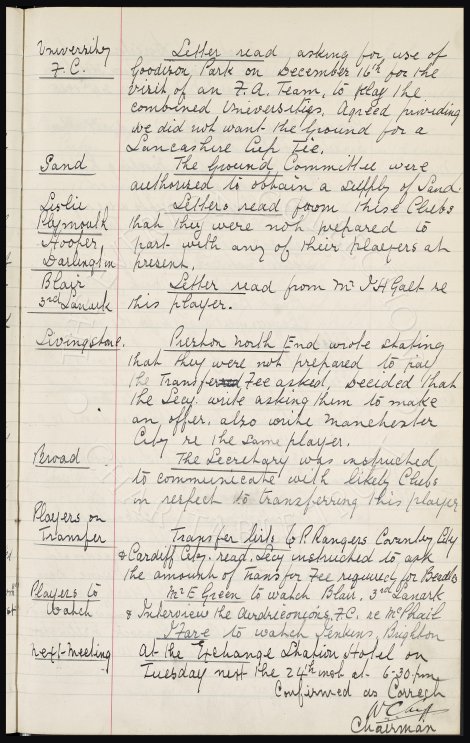 University Letter read asking for use of
F.C. Goodison Park on December 16th for the
visit of an F.A. Team, to play the
combined Universities. Agreed providing
we did not want the Ground for a
Lancashire Cup Tie.
Sand The Ground Committee were
authorised to obtain a supply of Sand
Leslie Letters read from these Clubs
Plymouth that they were not prepared to
Hooper part with any of their players at
Darlington present.
Blair Letter read from Mr J H Galt re
3rd Lanark this player.
Livingstone. Preston North End wrote stating
that they were not prepared to pay
the Transfer Fee asked, decided that
the Secy. write asking them to make
an offer. also write Manchester
City re the same player.
Broad The Secretary was instructed
to communicate with likely Clubs
in respect to transferring this player
Players on
Transfer Transfer lists to P. Rangers Coventry City
& Cardiff City, read. Secy instructed to ask
the amount of Transfer Fee required for Beadles
Players to Mr E Green to watch Blair, 3rd Lanark
Watch & Interview the Airdrieonians F.C. re McPhail
to watch Jenkins, Brighton
next-meeting At the Exchange Station Hotel on
Tuesday next the 24th inst at 6-30 pm
Confirmed as Correct
Chairman